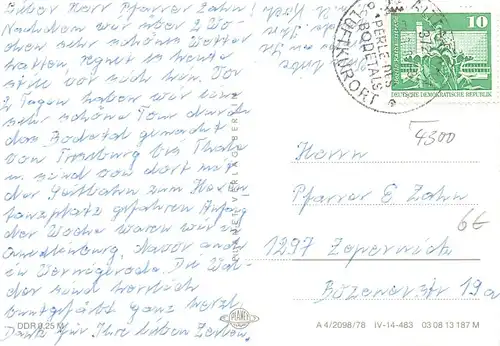 Lieber Herr Pfarrer Zahn!
Nachdem wir über 2 Wo-
chen sehr schönes Wetter
hatten regnet es heute
still vor sich hin. Vor
2 Tagen haben wir eine
sehr schöne Tour durch
das Bodetal gemacht
von Treseburg bis Thale
u. sind von dort mit
der Seilbahn zum Hexen
tanzplatz gefahren. Anfang
der Woche waren wir in
Quedlinburg, davor
in Wernigerode. Die Wäl-
der sind herrlich
buntgefärbt. Ganz herzl.
Dank für Ihre lieben Zeilen.
DDR 0,25 M
PLANET-VERLAG BERLIN
PLANET
PERLE DES
BODETALS
LUFTKURORT
10
DEUTSCHE DEMOKRATISCHE REPUBLIK
4300
Herrn
Pfarrer E. Zahn
6€
1297 Zepernick
Bozener Str 19a
A 4/2098/78 IV-14-483 03 08 13 187 M